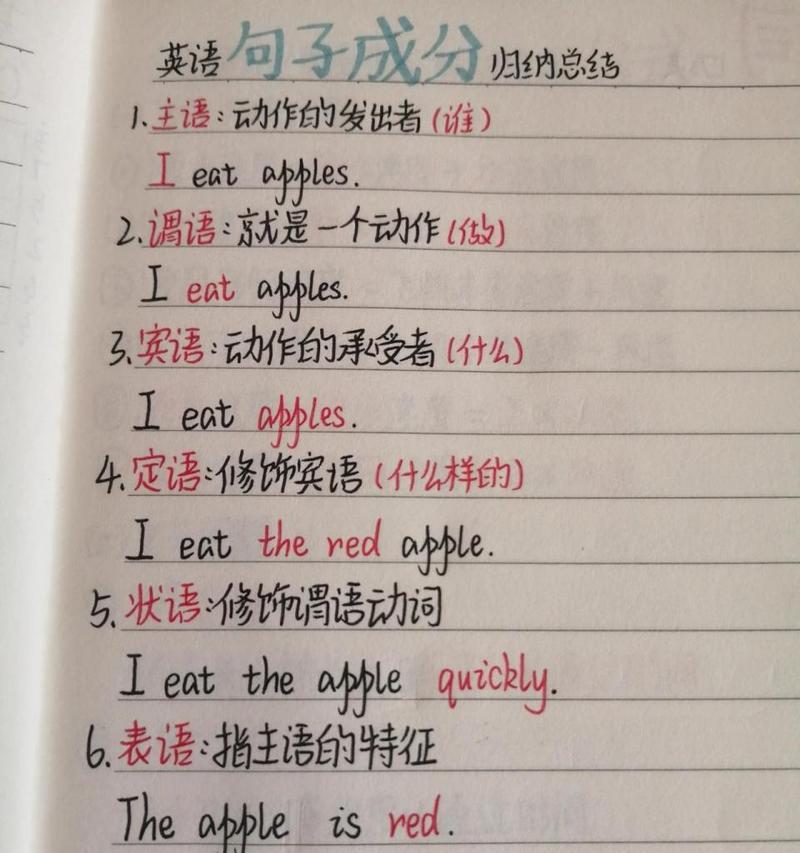 英语句子成分归纳总结
1.主语:动作的发出者(谁)
I eat apples.
2.谓语:就是一个动作(做)
I eat apples.
3.宾语:动作的承受者(什么)
I eat apples.
4.定语:修饰宾语(什么样的)
I eat the red apple.
5.状语:修饰谓语动词
I eat the apple quickly.
6.表语:指主语的特征
The apple is red.